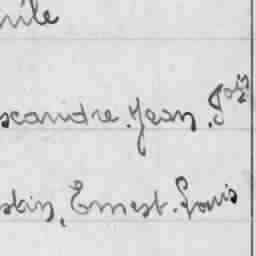 nile
scandre. Jean. Jos
stin, Ernest. Louis